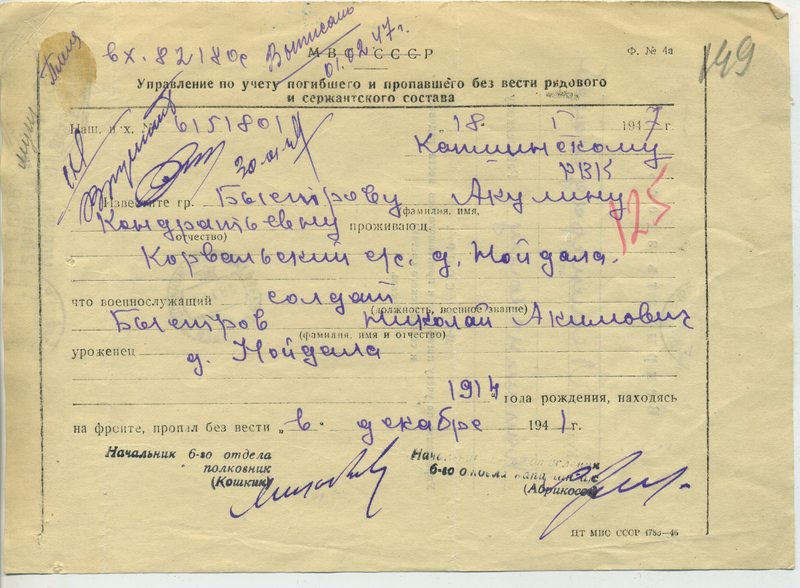 вх. 82180с Выписано
01.02.47г.
МВС СССР
Ф. № 4а
149
Управление по учету погибшего и пропавшего без вести рядового
и сержантского состава
Наш. исх. № 6151801
"18" I 1947 г.
Капшинскому
РВК
30.01.47
Известите гр. Быстрову Акулину
(фамилия, имя,
125
Кондратьевну проживающ.
отчество)
Корвальский с/с. д. Нойдала.
что военнослужащий солдат
(должность, военное звание)
Быстров Николай Акимович
(фамилия, имя и отчество)
уроженец д. Нойдала
1914 года рождения, находясь
на фронте, пропал без вести "в" декабре 1941 г.
Начальник 6-го отдела
полковник
(Кошкин)
Начальник отделения
6-го отдела капитан
(Абрикосов)
ПТ МВС СССР 4785—46